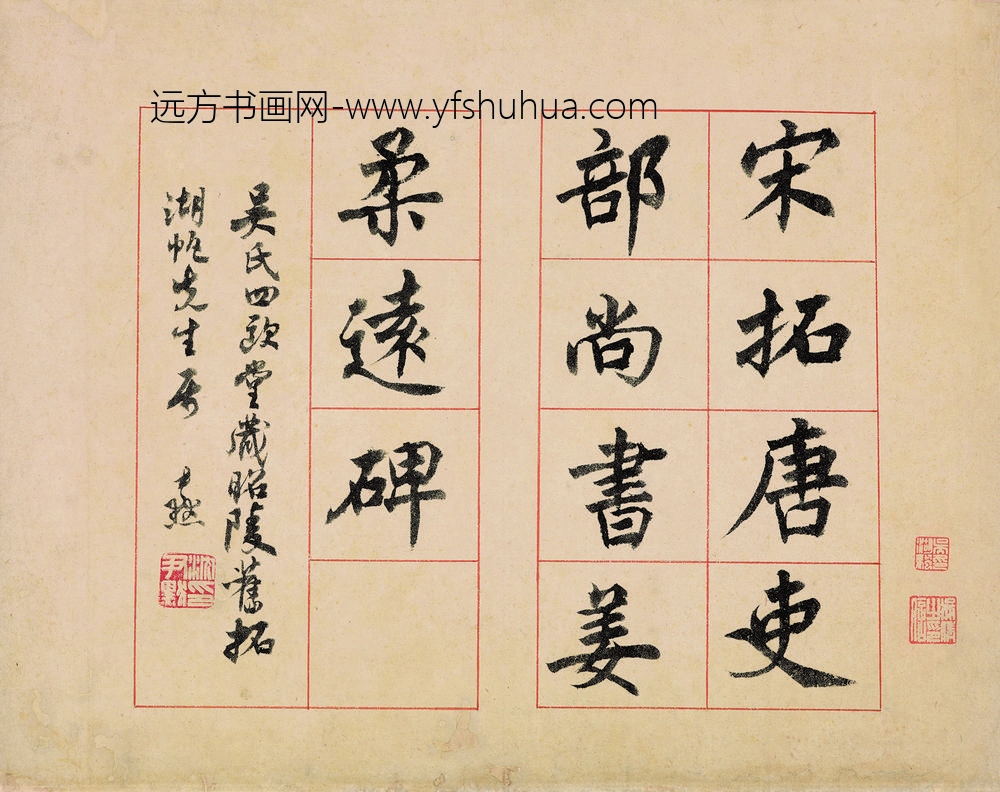 远方书画网-www.yfshuhua.com
宋拓唐吏
部尚書姜
柔遠碑
吴氏四歐堂藏昭陵舊拓
湖帆先生属 尹默